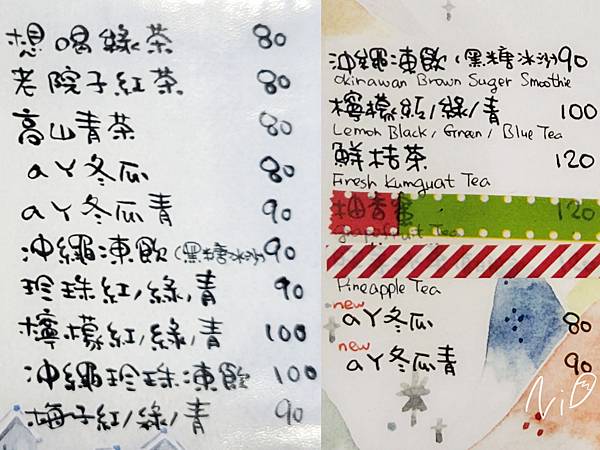 想喝綠茶 80
老院子紅茶 80
高山青茶 80
aㄚ冬瓜 80
aㄚ冬瓜青 90
沖繩凍飲(黑糖冰沙) 90
珍珠紅/綠/青 90
檸檬紅/綠/青 100
沖繩珍珠凍飲 100
梅子紅/綠/青 90
沖繩凍飲(黑糖冰沙) 90
Okinawan Brown Suger Smoothie
檸檬紅/綠/青 100
Lemon Black / Green / Blue Tea
鮮桔茶 120
Fresh Kumguat Tea
柚香蜜 120
grapefruit Tea
Pineapple Tea
new
aㄚ冬瓜 80
new
aㄚ冬瓜青 90